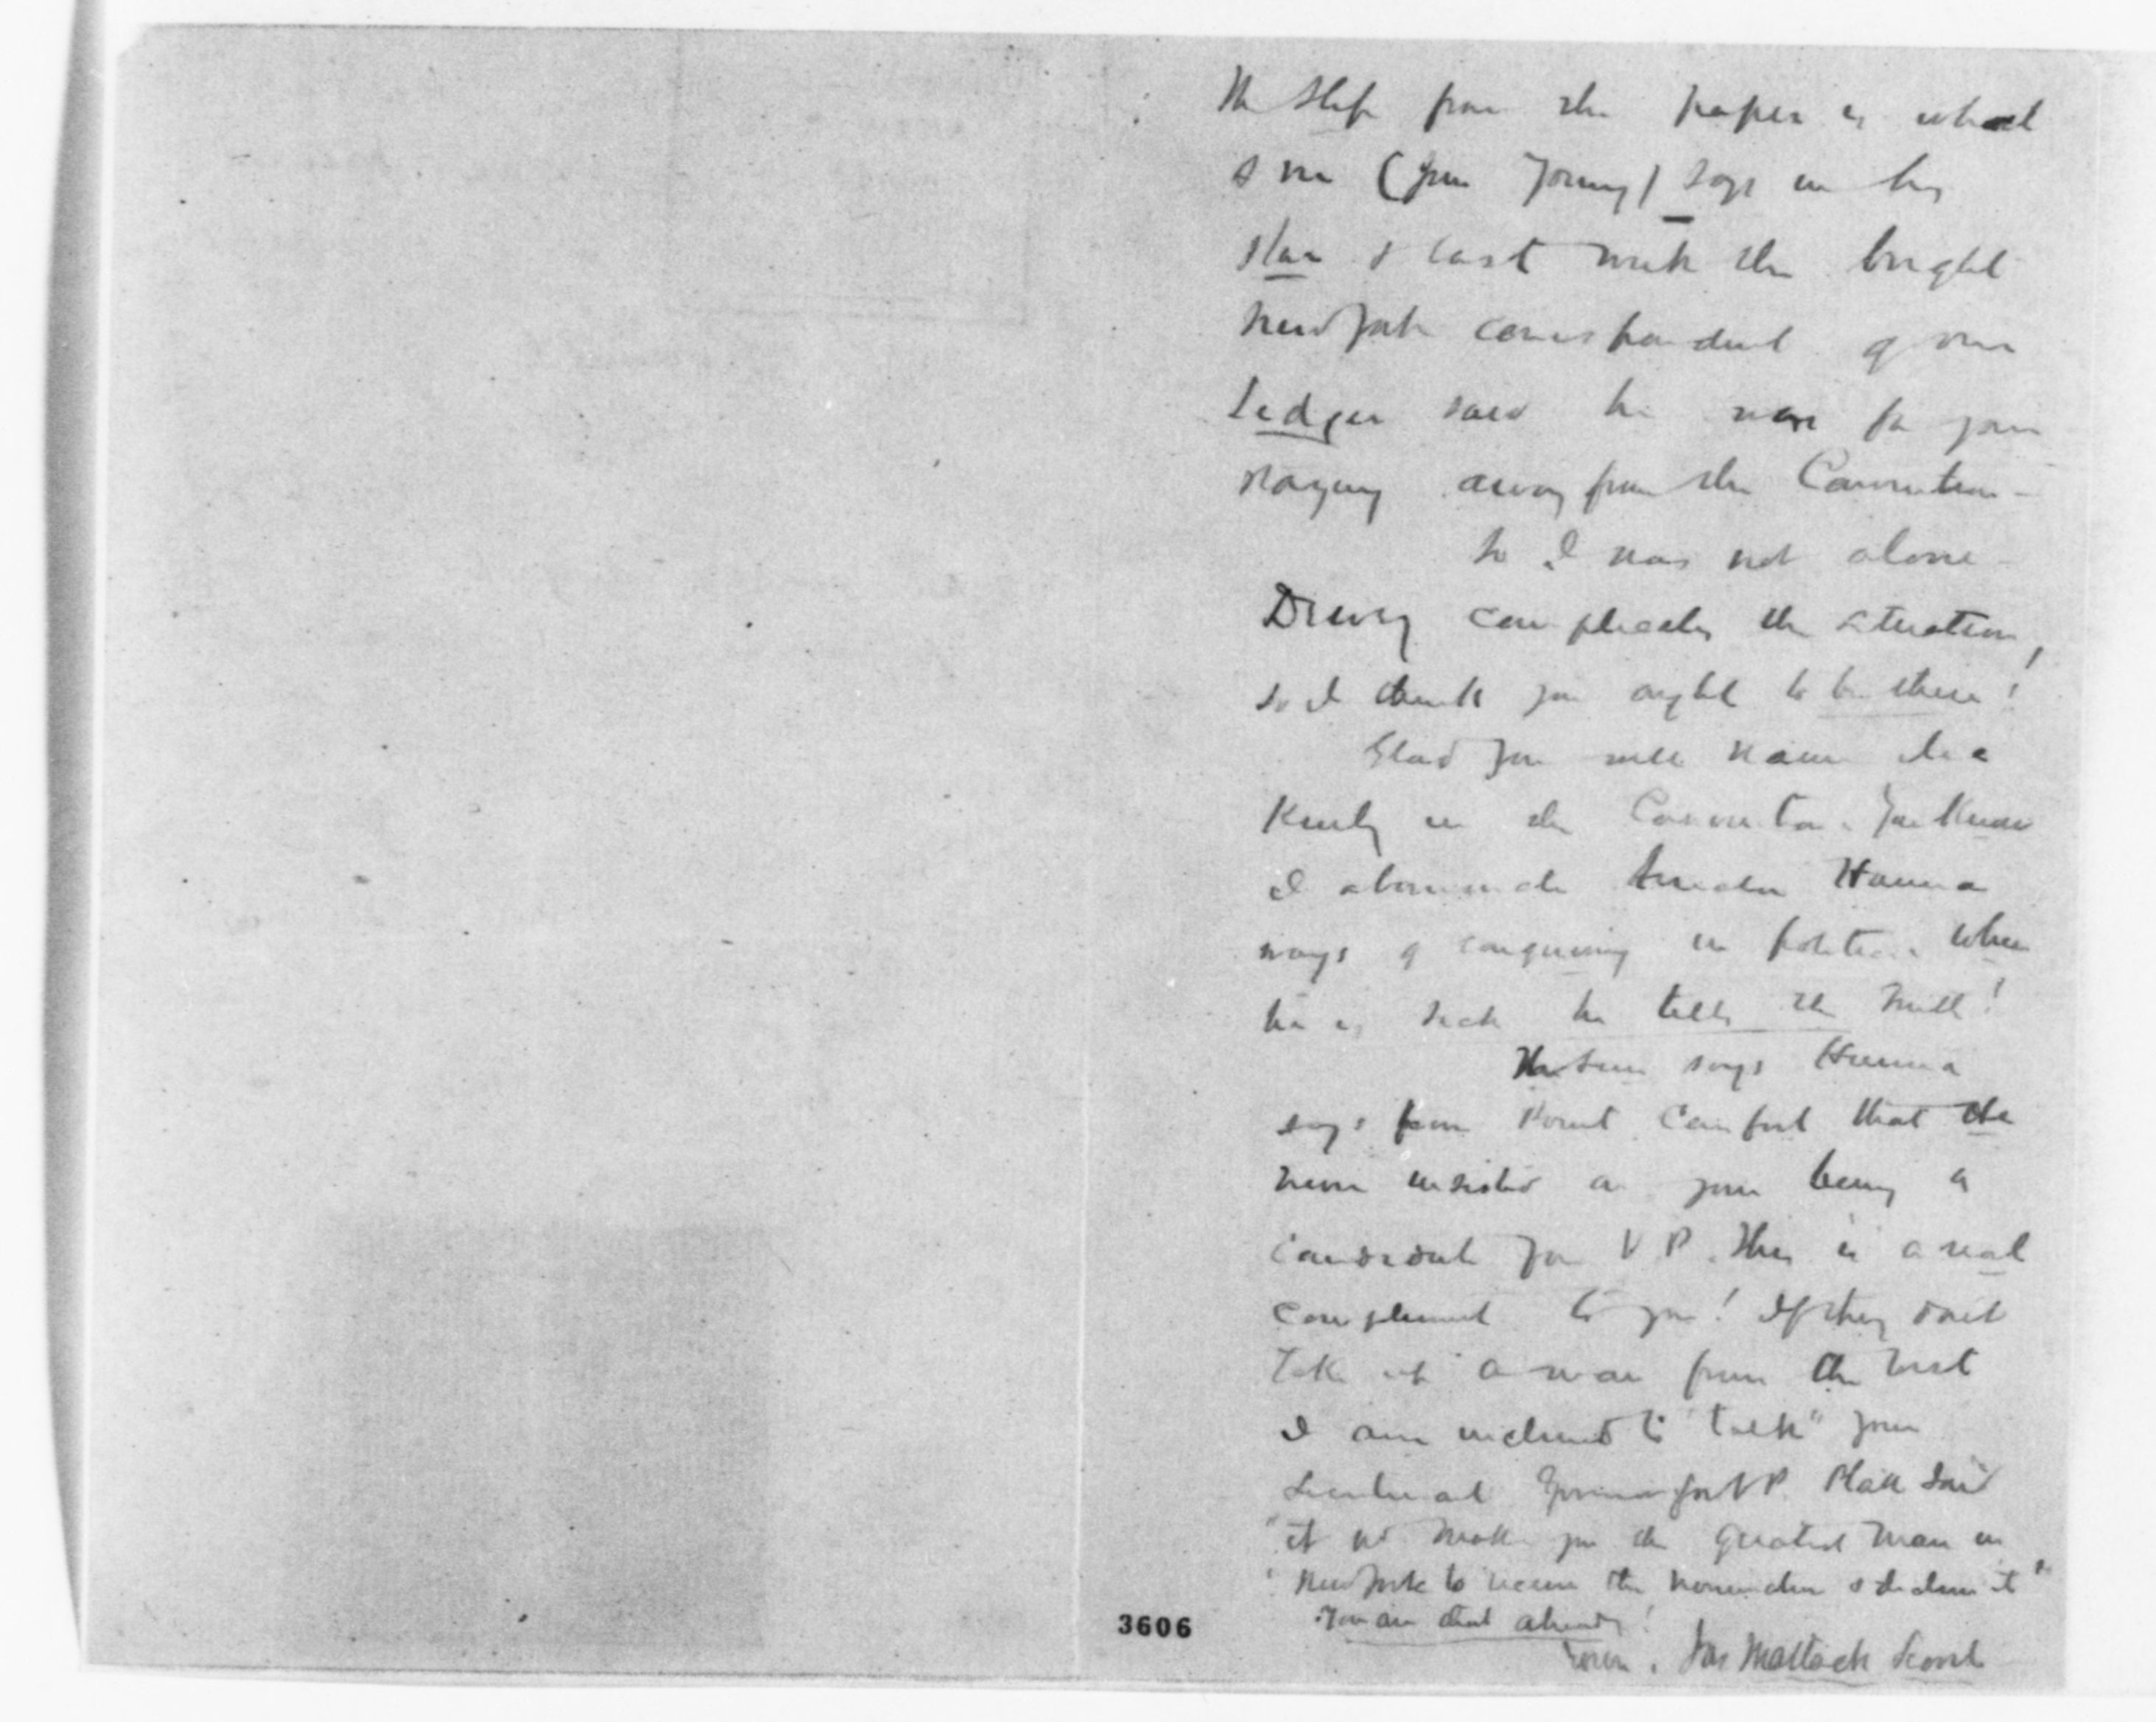 The slip from the paper is what
(Jim Young) says in his
Star & last week the bright
New York correspondent of our
Ledger said he was for your
staying away from the Convention -
So I was not alone -
Dewey complicates the situation,
so I think you ought to be there!
Glad you will name Mc
Kinly in the Convention. You Know
I abominate Senator Hanna
ways of conquering in politics. When
he is sick he tells the truth!
The Sun says Hanna
says from Point Comfort that he
never insisted on your being a
Candidate for V P. This is a real
compliment to you! If they don't
take up a man from the West
I am inclined to "talk" your
Lieutenant Governor for V P. Platt said
"it wd make you the greatest man in
New York to receive the nomination & decline it"
You are that already!
Yours. Jas Matlack Scovel
3606